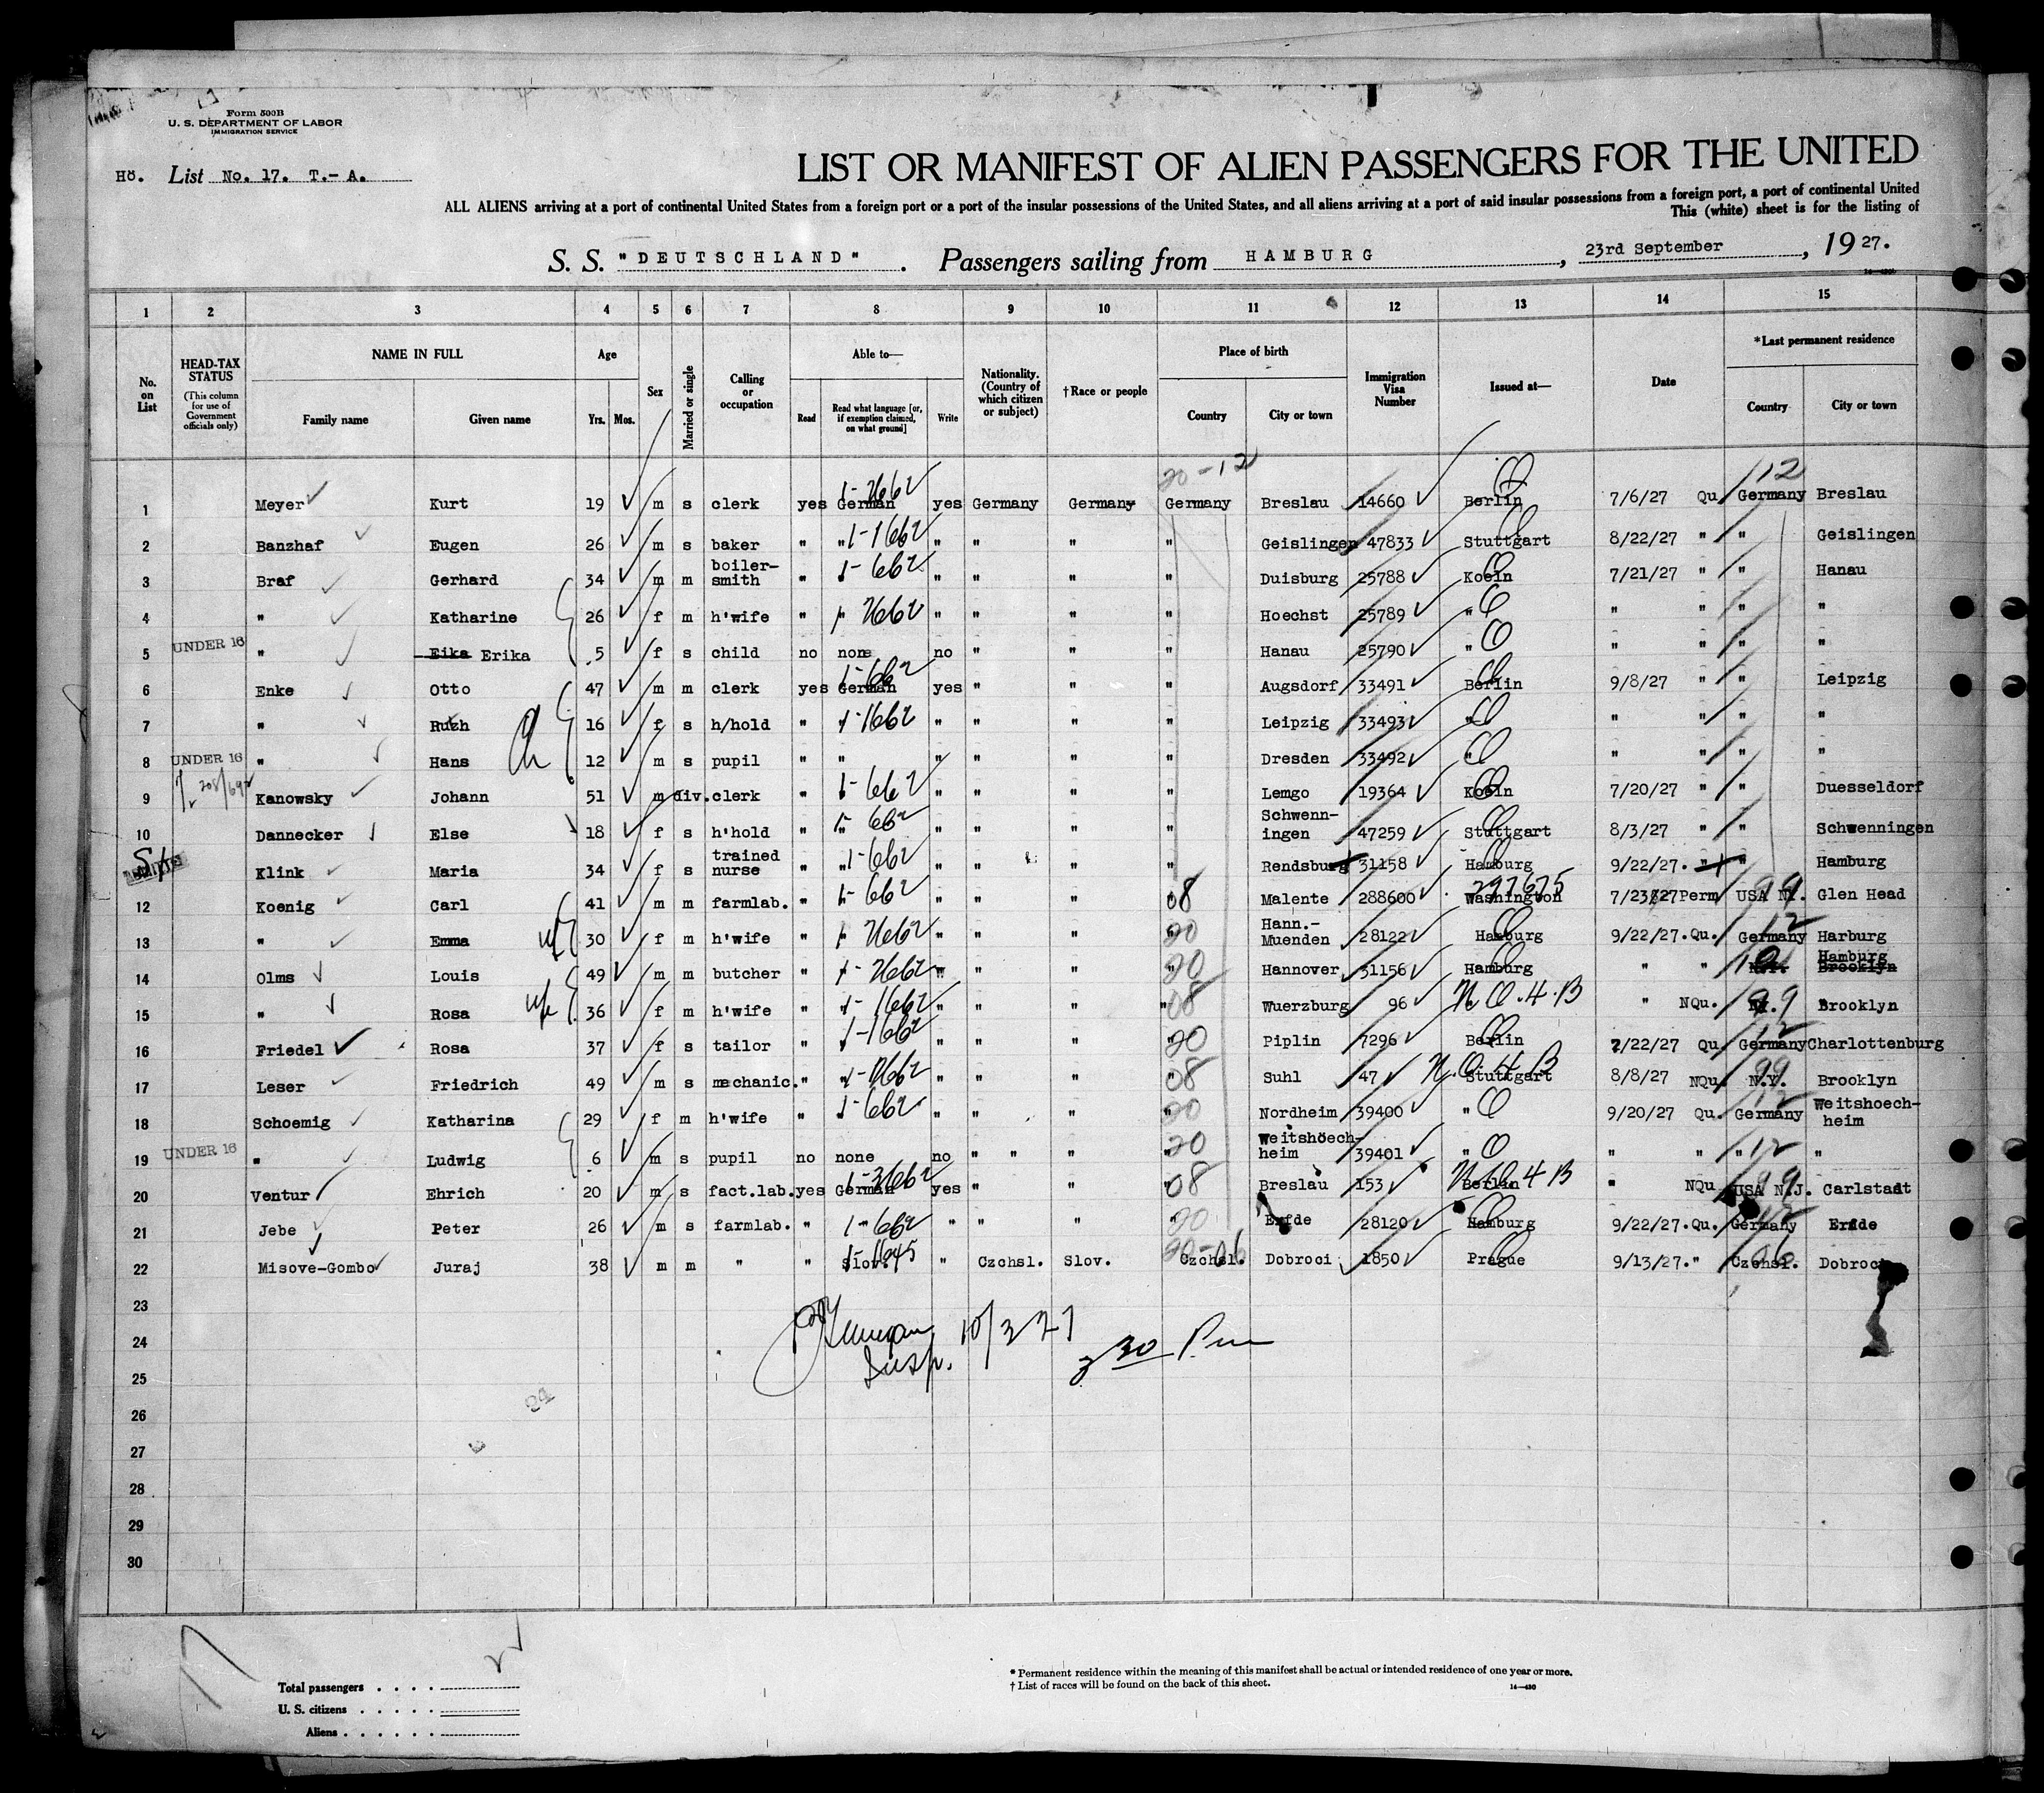 Form 500B
U. S. DEPARTMENT OF LABOR
IMMIGRATION SERVICE
Hö. List No. 17. T.- A.
LIST OR MANIFEST OF ALIEN PASSENGERS FOR THE UNITED
ALL ALIENS arriving at a port of continental United States from a foreign port or a port of the insular possessions of the United States, and all aliens arriving at a port of said insular possessions from a foreign port, a port of continental United
This (white) sheet is for the listing of
S. S. "DEUTSCHLAND". Passengers sailing from HAMBURG, 23rd September, 1927.
1 2 3 4 5 6 7 8 9 10 11 12 13 14 15
No. on List
HEAD-TAX STATUS (This column for use of Government officials only)
NAME IN FULL Family name Given name
Age Yrs. Mos.
Sex
Married or single
Calling or occupation
Able to— Read Read what language [or, if exemption claimed, on what ground] Write
Nationality. (Country of which citizen or subject)
†Race or people
Place of birth Country City or town
Immigration Visa Number
Issued at—
Date
*Last permanent residence Country City or town
20-12 12
1 Meyer Kurt 19 m s clerk yes German 1-2662 yes Germany Germany Germany Breslau 14660 Berlin 7/6/27 Qu. Germany Breslau
2 Banzhaf Eugen 26 m s baker " " 1-1662 " " " " Geislingen 47833 Stuttgart 8/22/27 " " Geislingen
3 Braf Gerhard 34 m m boiler-smith " " 1-662 " " " " Duisburg 25788 Koeln 7/21/27 " " Hanau
4 " Katharine 26 f m h'wife " " 2662 " " " " Hoechst 25789 " " " " "
UNDER 16
5 " Eika Erika 5 f s child no none no " " " Hanau 25790 " " " " "
6 Enke Otto 47 m m clerk yes German 1-662 yes " " " Augsdorf 33491 Berlin 9/8/27 " " Leipzig
7 " Ruth 16 f s h/hold " " 1-1662 " " " " Leipzig 33493 " " " " "
UNDER 16
8 " Hans 12 m s pupil " " " " " " Dresden 33492 " " " " "
9 Kanowsky Johann 51 m div. clerk " " 1-662 " " " " Lemgo 19364 Koeln 7/20/27 " " Duesseldorf
10 Dannecker Else 18 f s h'hold " " 1-662 " " " " Schwenn-ingen 47259 Stuttgart 8/3/27 " " Schwenningen
Klink Maria 34 f s trained nurse " " 1-662 " " " " Rendsburg 31158 Hamburg 9/22/27. " " Hamburg
12 Koenig Carl 41 m m farmlab. " " 1-662 " " " " 08 Malente 288600 Washington 297675 7/23/27 Perm USA NY. 99 Glen Head
13 " Emma wf 30 f m h'wife " " 2662 " " " " 20 Hann.-Muenden 28122 Hamburg 9/22/27. Qu. Germany 12 Harburg
14 Olms Louis 49 m m butcher " " 1-2662 " " " " 20 Hannover 31156 Hamburg " " Hamburg Brooklyn
15 " Rosa wife 36 f m h'wife " " 1-1662 " " " " 08 Wuerzburg 96 N.Q.4.B " NQu. 99 Brooklyn
16 Friedel Rosa 37 f s tailor " " 1-1662 " " " " 20 Piplin 7296 Berlin 7/22/27 Qu. Germany 12 Charlottenburg
17 Leser Friedrich 49 m s mechanic. " " " " " " 08 Suhl 47 Stuttgart N.Q.4.B 8/8/27 NQu. N.Y. 99 Brooklyn
18 Schoemig Katharina 29 f m h'wife " " 1-662 " " " " 20 Nordheim 39400 " 9/20/27 Qu. Germany 12 Weitshoech-heim
UNDER 16
19 " Ludwig 6 m s pupil no none no " " " " 20 Weitshöech-heim 39401 " " " " 12 "
20 Ventur Ehrich 20 m s fact.lab. yes German 1-3662 yes " " " 08 Breslau 153 Berlin " NQu. USA N.J. 99 Carlstadt
21 Jebe Peter 26 m s farmlab. " 1-662 " " " " 20 Erfde 28120 Hamburg 9/22/27. Qu. Germany Erfde
22 Misove-Gombo Juraj 38 m m " " Slov. 1-1645 " Czchsl. Slov. Czchsl. 20-06 Dobroci 1850 Prague 9/13/27. " Czchsl. 06 Dobroci
23
24
Insp. 10/3 27
3 30 Pm
25
26
27
28
29
30
Total passengers
U. S. citizens
Aliens
* Permanent residence within the meaning of this manifest shall be actual or intended residence of one year or more.
† List of races will be found on the back of this sheet.
14—430